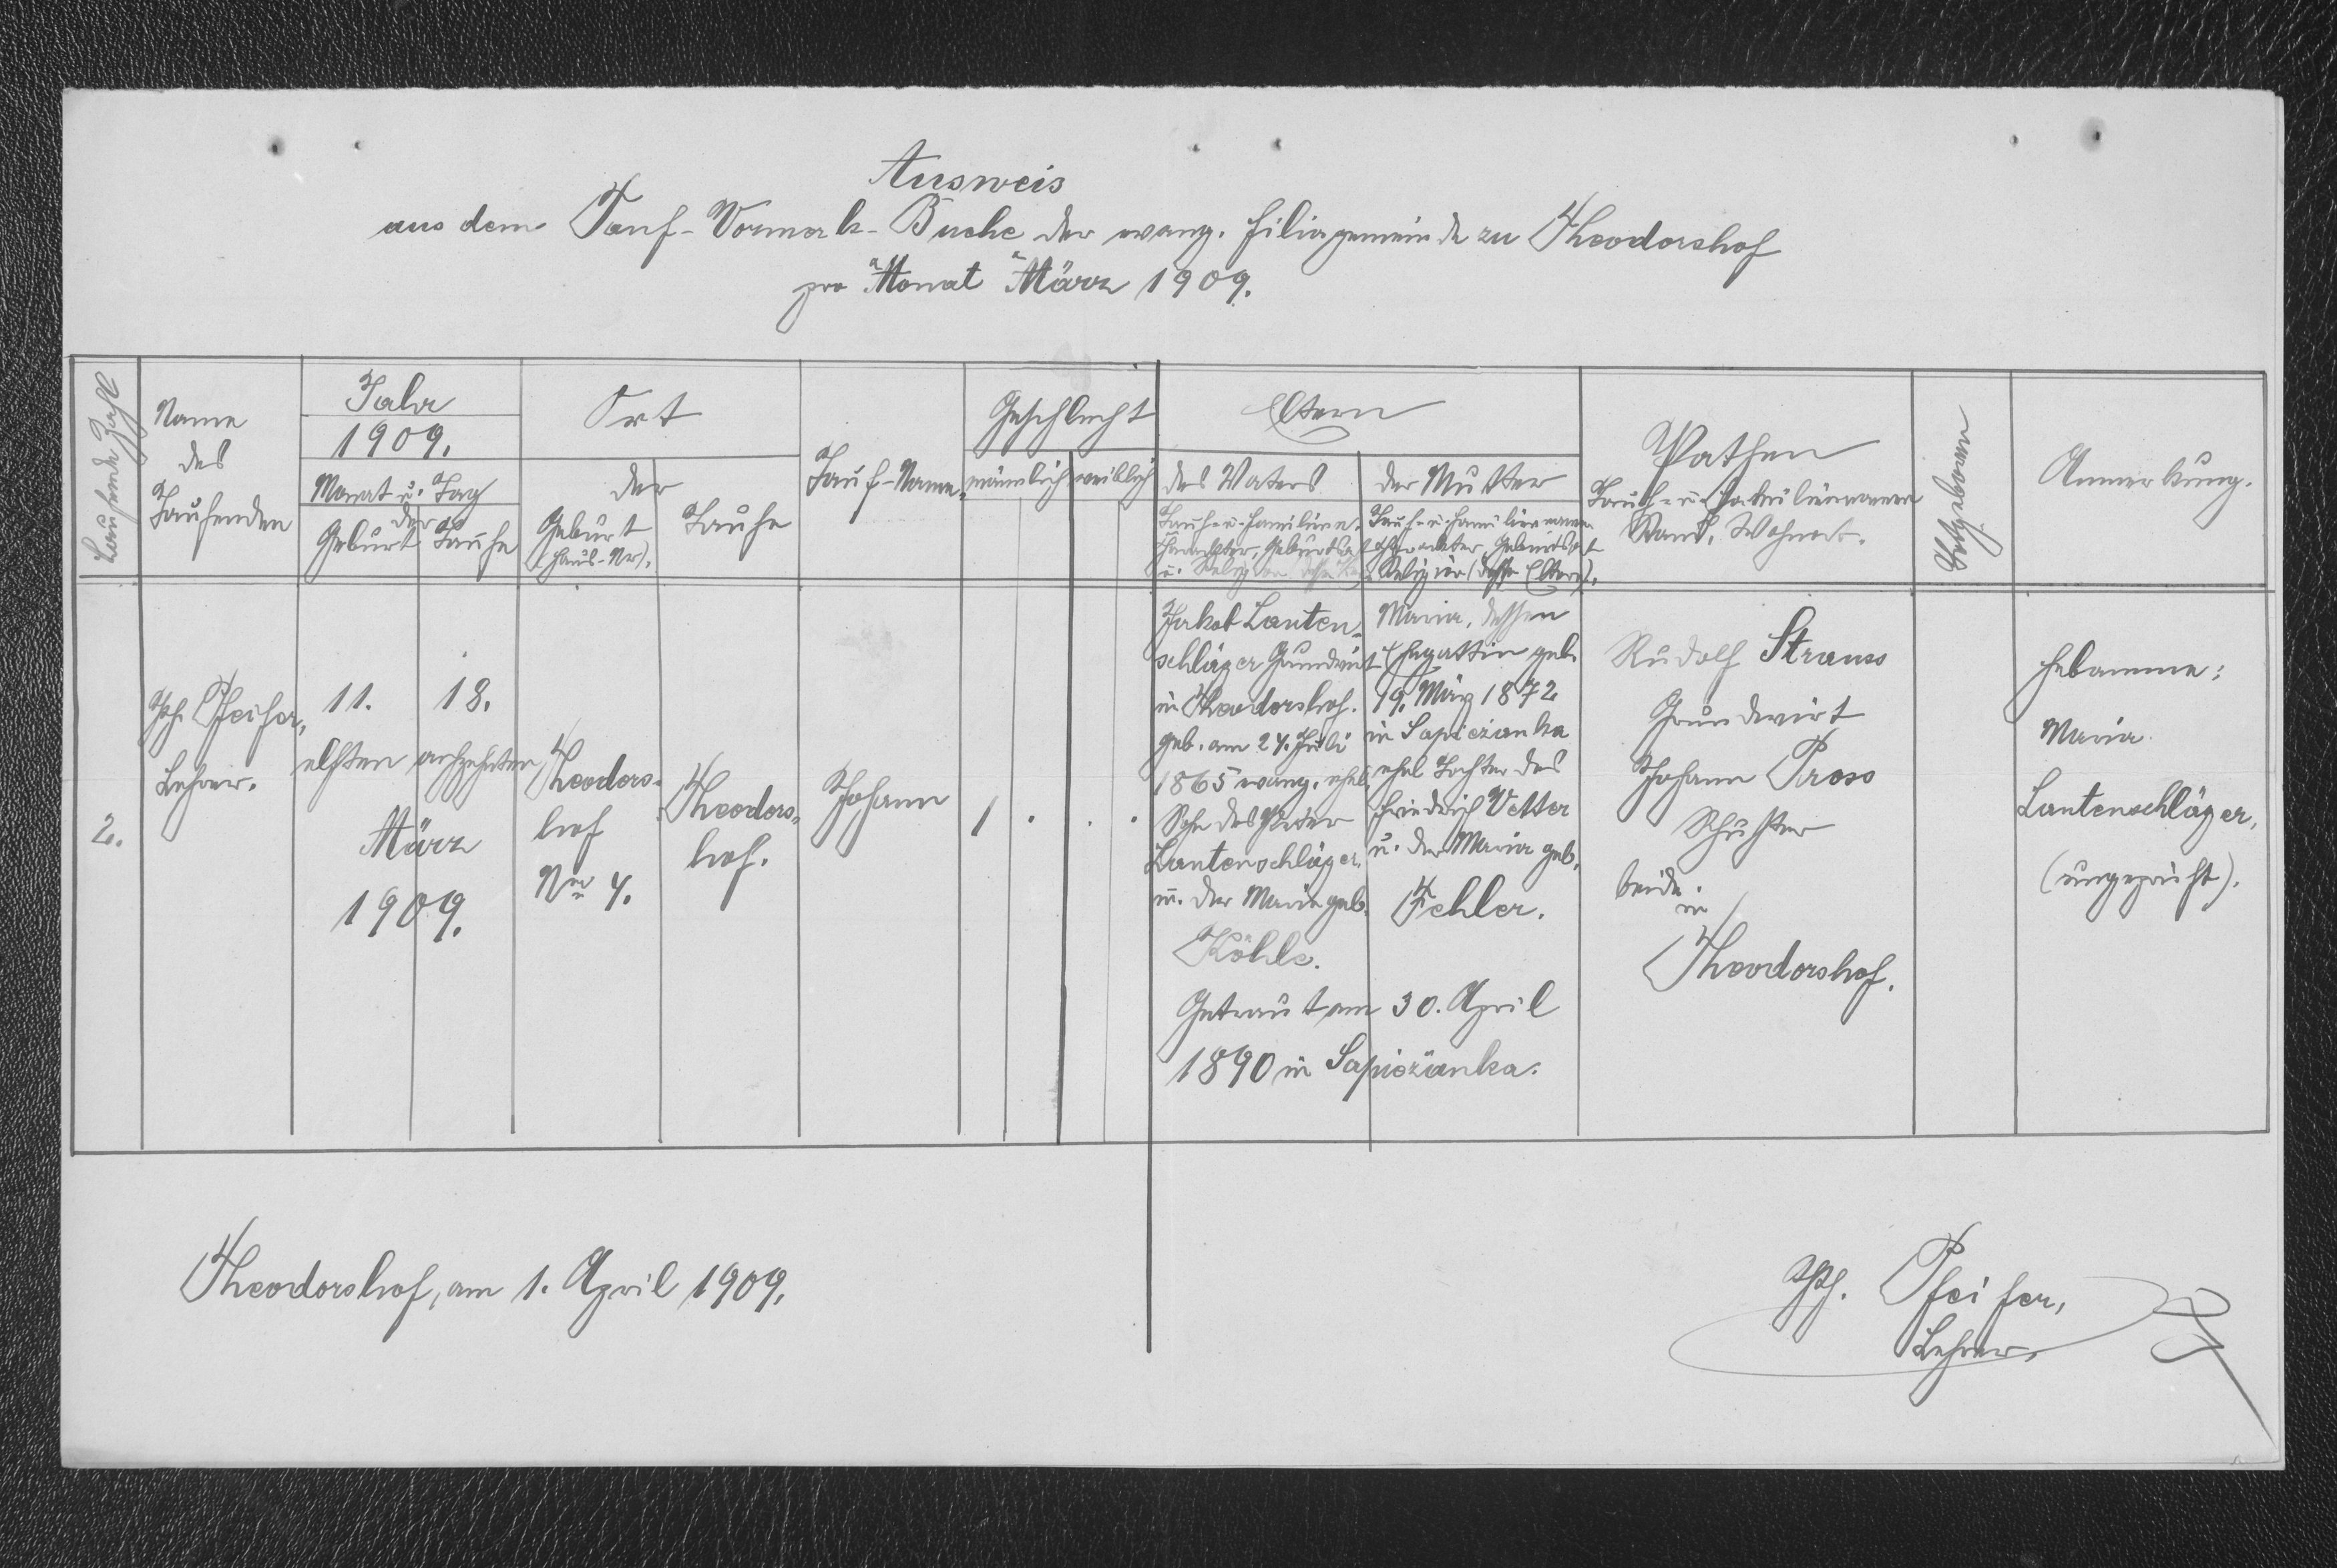 Ausweis
aus dem Tauf-Vormerk-Buche der evang. Filiagemeinde zu Theodorshof
pro Monat März 1909.
Laufende Zahl
Name
des
Taufenden
Jahr
1909.
Monat u. Tag
der
Geburt
Taufe
Ort
der
Geburt
(Haus-Nr).
Taufe
Tauf-Name
Geschlecht
männlich
weiblich
Eltern
des Vaters
Tauf- u. Familienn.
Charakter, Geburtsort
u. Religion
der Mutter
Tauf- u. Familienname
Charakter, Geburtsort
Religion (dessen Eltern).
Pathen
Tauf- u. Familiennamen
Stand, Wohnort.
Totgeboren
Anmerkung.
2.
Jph. Pfeifer,
Lehrer.
11.
18.
elften
achzehnten
März
1909.
Theodors-
hof
Nro 4.
Theodors-
hof.
Johann
1
Jakob Lauten-
schläger Grundwirt
in Theodorshof.
geb. am 24. Juli
1865 evang. ehel.
Sohn des Peter
Lautenschläger
u. der Maria geb.
Köhle.
Maria, dessen
Ehegattin geb.
19. März 1872
in Sapieżanka
ehel. Tochter des
Friedrich Vetter
u. der Maria geb.
Fehler.
Getraut am 30. April
1890 in Sapieżanka.
Rudolf Strauss
Grundwirt
Johann Pross
Schuster
beide
in
Theodorshof.
Hebamme:
Maria
Lautenschläger,
(ungeprüft).
Theodorshof, am 1. April 1909.
Jph. Pfeifer,
Lehrer.